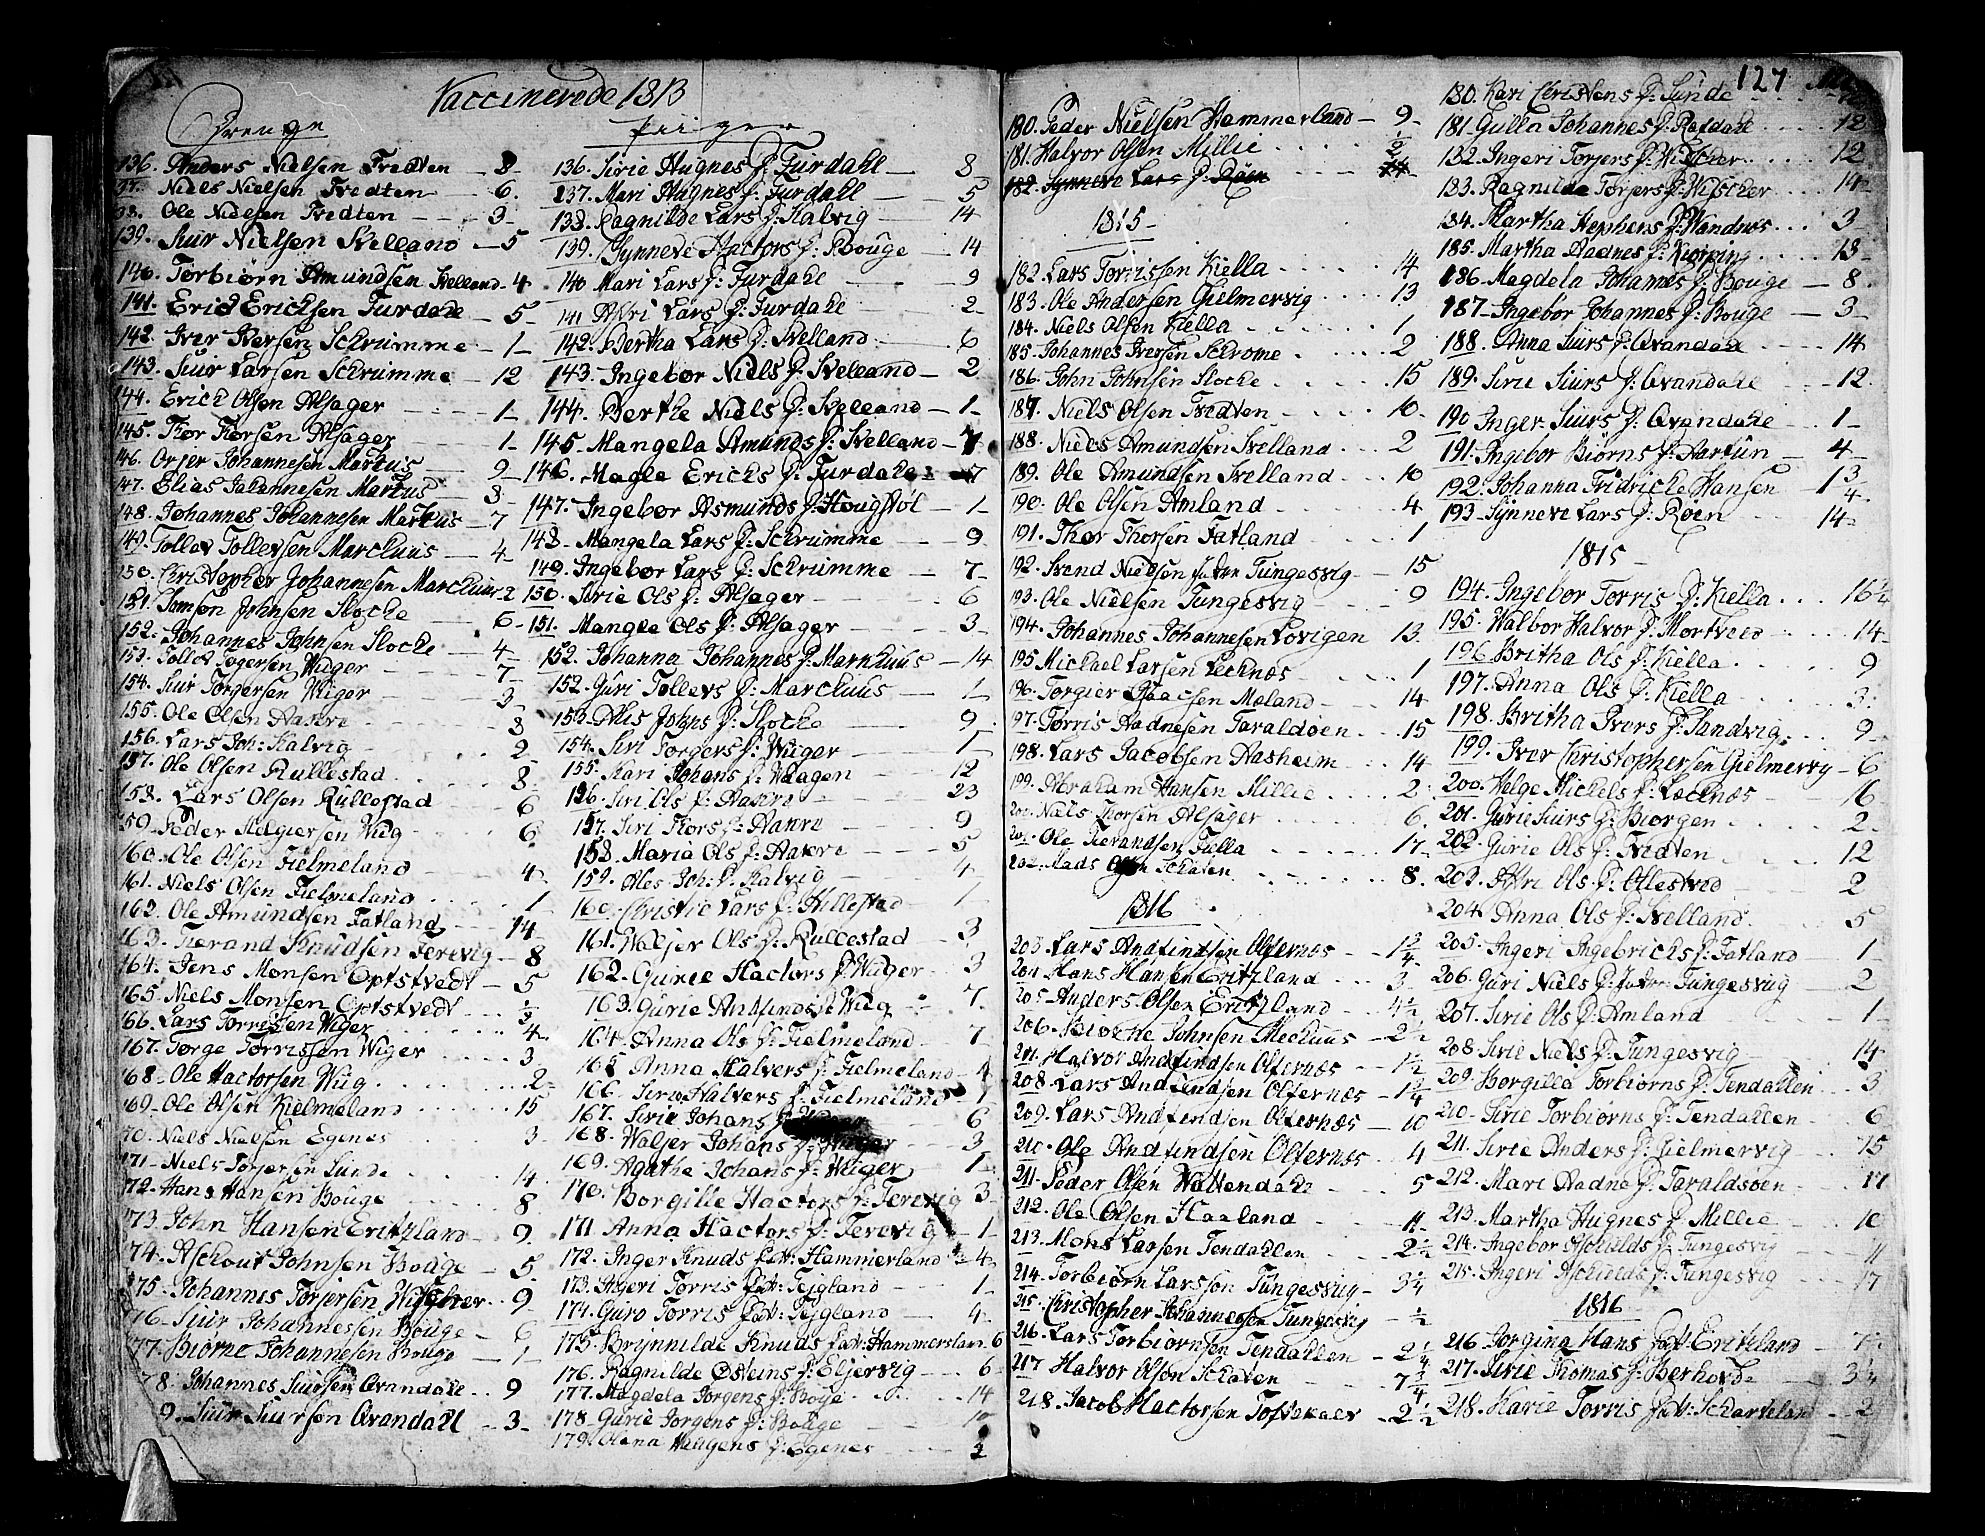 Vaccinerede 1813
Drenge
136. Anders Nielsen Fredten - 8 -
37. Niels Nielsen Fredten - 6.
38. Ole Nielsen Fredten - 3 -
139. Siur Nielsen Svelland - 5
140. Torbiörn Amundsen Svelland - 4
141. Erich Erichsen Furdahl - 5 -
142. Iver Iversen Schrumme - 1 -
143. Siur Larsen Schrumme - 12
144. Erich Olsen Alsager - 1 -
145. Thor Thorsen Alsager - 1 -
146. Johannesen Markus - 2 -
47. Elias Johannesen Markus - 3 -
148. Johannes Johannesen Markus - 7
49. Tollev Tollevsen Marchuus - 4 -
150. Christopher Johannesen Marchuus 2
151. Samson Johnsen Stoche - 6 -
152. Johannes Johnsen Stoche - 4 -
153. Tollev Torgersen Wiger - 7 -
154. Siur Torgersen Wiger - 3 -
155. Ole Olsen Aakre 3
156. Lars Joh: Halvig 2
157. Ole Olsen Rullestad 8.
158. Lars Olsen Rullestad 6
159. Peder Helgiersen Wiig 6
160. Ole Olsen Fielmeland 4 -
161. Niels Olsen Fielmeland 1 -
162. Ole Amundsen Fatland 14
163. Tierand Knudsen Ierevig - 8
164. Jens Monsen Optstvedt - 5
165. Niels Monsen Optstvedt
166. Lars Torrissen Wiger 4 -
167. Torge Torrissen Wiger 3
168. Ole Hactorsen Wiig 2 -
169. Ole Olsen Kielmeland 15
70. Niels Nielsen Egenes 3 -
171. Niels Torjersen Sunde 14
172. Hans Hansen Bouge 8
173. John Hansen Eritzland 9.
174. Aschout Johnsen Bouge - 5
175. Johannes Torjersen 9
176. Siur Johannessen Bouge - 6
177. Biörne Johannesen Bouge - 1 -
78. Johannes Siursen Qvandahl 9
9. Siur Siursen Qvandahl - 3 -
Piiger
136. Sirie Hugnes D: Furdahl - 8
137. Mari Hugnes D: Furdahl - 5
138. Ragnilde Lars D: Halvig - 14
139. Synneve Hactors D: Bouge - 14
140 Mari Lars D: Furdahl 9
141 Alvri Lars D: Furdahl 2 -
142. Bertha Lars D: Svelland - 6
143. Ingebor Niels D: Svelland - 2
144. Berthe Niels D: Svelland - 1 -
145. Mangela Amunds D: Svelland -
146. Magle Erichs D: Furdahl 7
147. Ingebor Asmunds D: Hougstöl - 1 -
148 - Mangela Lars D: Schrumme - 9
149. Ingebor Lars D: Schrumme - 7 -
150. Sirie Ols D: Alsager - 6
151. Mangle Ols D: Alsager - 3 -
152. Johanna Johannes D: Marchuus - 14
152. Guri Tollevs D: Marchuus - 1
153. Ales Johns D: Stoche - 9.
154. Siri Torgers D: Wiiger - 1
155. Kari Johans D: Waagen - 12
156. Siri Ols D: Aakre - 23
157. Siri Thors D: Aakre - 9
158. Maria Ols D: Aakre - 5
159. Ales Joh: D: Halvig - 4
160. Christie Lars D: Hillestad - 1
161. Waljer Ols D: Rullestad - 3
162. Gurie Hactors D: Wiiger 3
163. Gurie D: Wiig 7
164. Anna Ols D: Fielmeland - 7
165 Anna Halvers D: Fielmeland -
166. Siri Halvers D: Fielmeland 1
167. Sirie Johans D: 6
168. Waljer Johans D: Wiiger - 3
169. Agathe Johans D: Wiiger - 1
170. Borgille Hactors D: Ierevig 3 -
171 Anna Hactors D: Ierevig - 1
172. Inger Knuds Dat: Hammerland - 4 -
173. Ingeri Torris Dat: Fejgland - 1 -
174. Guro Torris Dat: Fejgland 4 -
175. Brynnilde Knuds Dat: Hammerslan. 6
176. Ragnilde Østeins D: Eljervig - 6 -
177. Magdela Jorgens D: Boge 14
178. Gurie Jorgens D: Bouge 10
179. Olena Haugens D: Egenes 2
127
180. Peder Nielsen Hammerland - 9 -
181. Halvor Olsen Millie ½
182. Synneve Lars D: Röen 14 -
1815 -
182. Lars Torrissen Kiella 14
183. Ole Andersen Gielmervig 13
184. Niels Olsen Kiella 1
185. Johannes Iversen Schrome 2
186. John Johnsen Stoche 15
187. Niels Olsen Fredten 10.
188. Niels Amundsen Svelland 2
189. Ole Amundsen Svelland 10
190. Ole Olsen Amland 4
191. Thor Thorsen Fatland 1
192. Svend Nielsen Tungesvig - 15
193. Ole Nielsen Tungesvig 9
194. Johannes Johannesen Lovigen 13
195 Michael Larsen Lecknæs 1
196. Torgier Isaacsen Mæland 14
197. Torris Aadnesen Taraldsöen 15
198. Lars Jacobsen Aasheim 14
199. Abraham Hansen Millie 2
200. Niels Thorsen Alsager 6.
201. Ole Tierandsen Fiella 17 -
202. Mads Olsen Schaten 8.
1816
203. Lars Andfindsen Olfernæs 1¾
204. Hans Hansen Eritzland 3.
205. Anders Olsen Eritzland 4½
206. Biörne Johnsen Mechuus - 2½
207. Halvor Andfindsen Olfernæs - 1½
208. Lars Andfindsen Olfernæs - 1¼
209. Lars Andfindsen Olfernæs - 10
210. Ole Andfindsen Olfernæs 4
211. Peder Olsen Wattendahl 5
212. Ole Olsen Haaland 11.
213. Mons Larsen Tendahlen 2½
214. Torbiörn Larsson Tungesvig - 3¼
215. Christopher Johannessen Tungesvig - ½
216. Lars Torbiörnsen Tendahlen - 2¼
217 Halvor Olsen Schaten 7¾
218. Jacob Hactorsen Toftekaer - 2½
180. Kari Christens D: Sunde
181. Gulla Johannes D: Rafdahl 12
182. Ingeri Torjers D: 12
183. Ragnilde Torjers D: 14 -
184. Martha Stephens D: Wandnæs 3
185. Martha Aadnes D: 13
186. Magdela Johannes D: Bouge - 8.
187. Ingebor Johannes D: Bouge - 3 -
188. Anna Siurs D: Qvandahl 14
189. Sirie Siurs D: Qvandahl 12.
190. Inger Siurs D: Qvandahl - 1 -
191. Ingebor Biörns D: Aartun - 4 -
192. Johanna Fridricke Hansen - 1¾
193. Synneve Lars D: Röen 14 -
1815 -
194. Ingebor Torris D: Kiella 16½
195. Walbor Halvor D: Mortveed 14 -
196. Britha Ols D: Kiella 9
197. Anna Ols D: Kiella 3.
198. Britha Ivers D: Sandvig 9 -
199. Iver Christophersen Gielmervig - 6
200. Helge Michels D: Lecknæs - 16
201. Gurie Siurs D: Biorgen 2 -
202. Gurie Ols D: Fredten 12
203. Alvri Ols D: Ollestved 2
204. Anna Ols D: Svelland 5
205. Ingeri Ingebrichs D: Fatland - 1 -
206. Guri Niels D: Tungesvig - 2
207. Sirie Ols D: Amland - 1 -
208. Sirie Niels D: Tungesvig 14
209. Borgilla Torbiörns D: Tendahlen - 3
210. Sirie Torbiörns D: Tendahlen 6
211. Sirie Anders D: Gielmervig 15
212. Mari Aadne D: Taraldsöen 17
213. Martha Hugnes D: Millie 10
214. Ingebor Aschilds D: Tungesvig 11
215. Ingeri Aschilds D: Tungesvig 17
1816
216. Jorgina Hans Dat: Eritzland
217. Sirie Thomas D: 3¼
218. Karie Torris Dat: Scharteland - 2